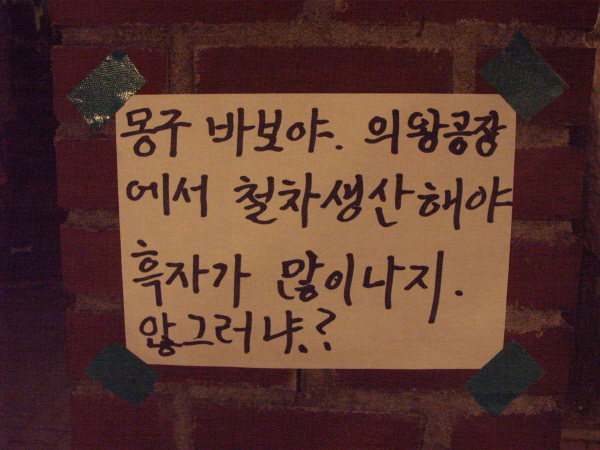 몽구 바보야. 의왕공장
에서 철차생산해야
흑자가 많이나지.
않그러냐.?